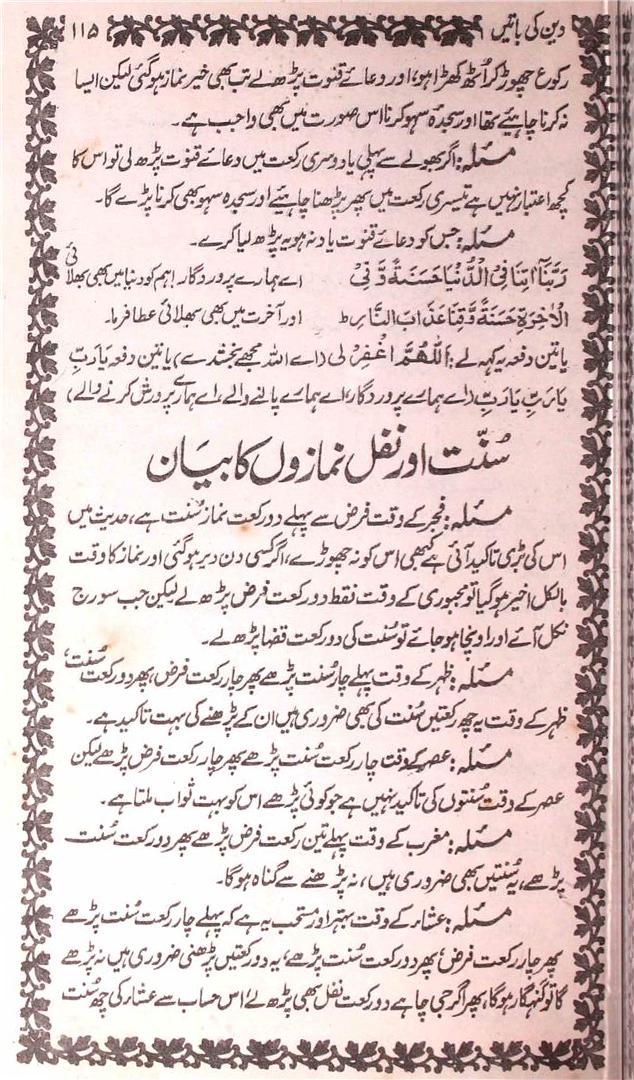 دین کی باتیں ۱۱۵
رکوع چھوڑ کر اُٹھ کھڑا ہو، اور دعائے قنوت پڑھ لے تب بھی خیر نماز ہوگئی لیکن ایسا
نہ کرنا چاہیئے تھا اور سجدۂ سہو کرنا اس صورت میں بھی واجب ہے۔
مسئلہ: اگر بھولے سے پہلی یا دوسری رکعت میں دعائے قنوت پڑھ لی تو اس کا
کچھ اعتبار نہیں ہے تیسری رکعت میں پھر پڑھنا چاہیئے اور سجدہ سہو بھی کرنا پڑے گا۔
مسئلہ: جس کو دعائے قنوت یاد نہ ہو یہ پڑھ لیا کرے۔
رَبَّنَآ اٰتِنَا فِی الدُّنْیَا حَسَنَۃً وَّفِی اے ہمارے پروردگار! ہم کو دنیا میں بھی بھلائی
الْاٰخِرَۃِ حَسَنَۃً وَّقِنَا عَذَابَ النَّارِ ط اور آخرت میں بھی بھلائی عطا فرما۔
یا تین دفعہ یہ کہہ لے: اَللّٰھُمَّ اغْفِرْ لِی (اے اللہ مجھے بخشدے) یا تین دفعہ یَارَبِّ
یَارَبِّ یَارَبِّ (اے ہمارے پروردگار، اے ہمارے پالنے والے، اے ہمارے پرورش کرنے والے)
سُنّت اور نفل نمازوں کا بیان
مسئلہ: فجر کے وقت فرض سے پہلے دو رکعت نماز سُنت ہے، حدیث میں
اس کی بڑی تاکید آئی ہے کبھی اس کو نہ چھوڑے، اگر کسی دن دیر ہوگئی اور نماز کا وقت
بالکل اخیر ہوگیا تو مجبوری کے وقت فقط دو رکعت فرض پڑھ لے لیکن جب سورج
نکل آئے اور اونچا ہو جائے تو سُنت کی دو رکعت قضا پڑھ لے۔
مسئلہ: ظہر کے وقت پہلے چار سُنت پڑھے پھر چار رکعت فرض، پھر دو رکعت سُنت،
ظہر کے وقت یہ چھ رکعتیں سُنت کی بھی ضروری ہیں ان کے پڑھنے کی بہت تاکید ہے۔
مسئلہ: عصر کے وقت چار رکعت سُنت پڑھے پھر چار رکعت فرض پڑھے لیکن
عصر کے وقت سُنتوں کی تاکید نہیں ہے جو کوئی پڑھے اس کو بہت ثواب ملتا ہے۔
مسئلہ: مغرب کے وقت پہلے تین رکعت فرض پڑھے پھر دو رکعت سُنت
پڑھے، یہ سُنتیں بھی ضروری ہیں، نہ پڑھنے سے گناہ ہوگا۔
مسئلہ: عشاء کے وقت بہتر اور مستحب یہ ہے کہ پہلے چار رکعت سُنت پڑھے
پھر چار رکعت فرض، پھر دو رکعت سُنت پڑھے، یہ دو رکعتیں پڑھنی ضروری ہیں نہ پڑھے
گا تو گنہگار ہوگا، پھر اگر جی چاہے دو رکعت نفل بھی پڑھ لے، اس حساب سے عشاء کی چھ سُنت